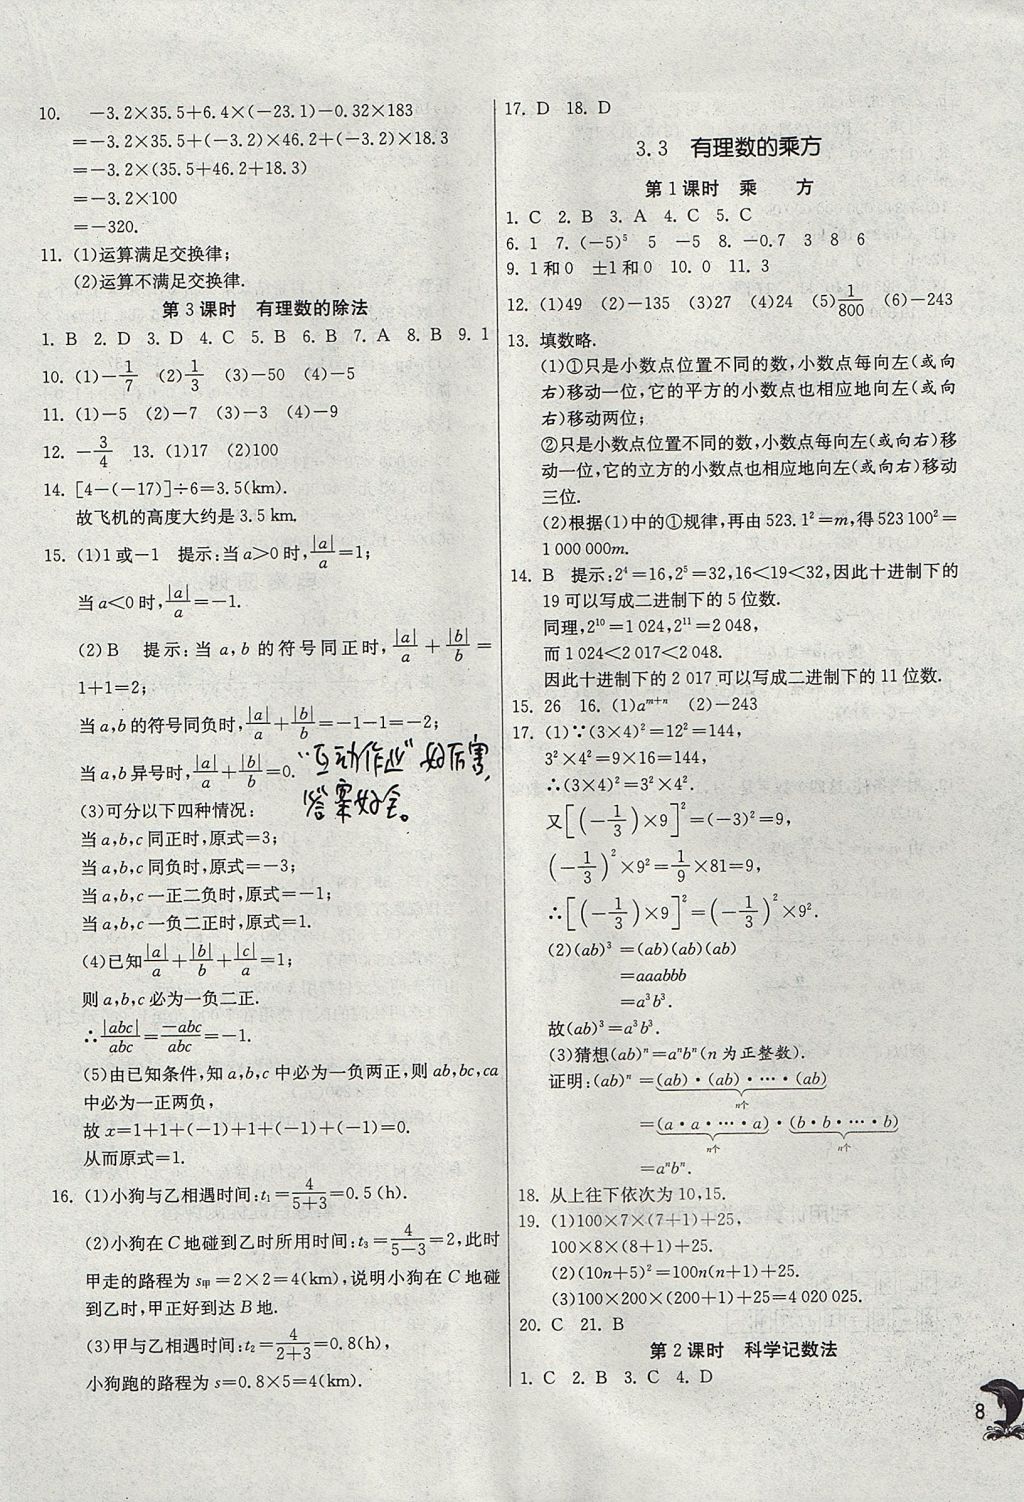 10. －3.2×35.5+6.4×(－23.1)－0.32×183
=－3.2×35.5+(－3.2)×46.2+(－3.2)×18.3
=－3.2×(35.5+46.2+18.3)
=－3.2×100
=－320.
11. (1)运算满足交换律;
(2)运算不满足交换律.
第3课时 有理数的除法
1. B 2. D 3. D 4. C 5. B 6. B 7. A 8. B 9. 1
10. (1)－1/7 (2)1/3 (3)－50 (4)－5
11. (1)－5 (2)－7 (3)－3 (4)－9
12. －3/4 13. (1)17 (2)100
14. [4－(－17)]÷6=3.5(km).
故飞机的高度大约是3.5 km.
15. (1)1或－1 提示:当a>0时,|a|/a=1;
当a<0时,|a|/a=－1.
(2)B 提示:当a,b的符号同正时,|a|/a+|b|/b=
1+1=2;
当a,b的符号同负时,|a|/a+|b|/b=－1－1=－2;
当a,b异号时,|a|/a+|b|/b=0.
“互动作业”好厉害,
答案好全。
(3)可分以下四种情况:
当a,b,c同正时,原式=3;
当a,b,c同负时,原式=－3;
当a,b,c一正二负时,原式=－1;
当a,b,c一负二正时,原式=1.
(4)已知|a|/a+|b|/b+|c|/c=1;
则a,b,c必为一负二正.
∴|abc|/abc=－abc/abc=－1.
(5)由已知条件,知a,b,c中必为一负两正,则ab,bc,ca
中必为一正两负,
故x=1+1+(－1)+1+(－1)+(－1)=0.
从而原式=1.
16. (1)小狗与乙相遇时间:t₁=4/(5+3)=0.5(h).
(2)小狗在C地碰到乙时所用时间:t₃=4/(5－3)=2,此时
甲走的路程为s甲=2×2=4(km),说明小狗在C地碰
到乙时,甲正好到达B地.
(3)甲与乙相遇时间:t₂=4/(2+3)=0.8(h),
小狗跑的路程为s=0.8×5=4(km).
17. D 18. D
3.3 有理数的乘方
第1课时 乘 方
1. C 2. B 3. A 4. C 5. C
6. 1 7. (－5)⁵ 5 －5 8. －0.7 3 8 6
9. 1和0 ±1和0 10. 0 11. 3
12. (1)49 (2)－135 (3)27 (4)24 (5)1/800 (6)－243
13. 填数略.
(1)①只是小数点位置不同的数,小数点每向左(或向
右)移动一位,它的平方的小数点也相应地向左(或向
右)移动两位;
②只是小数点位置不同的数,小数点每向左(或向右)移
动一位,它的立方的小数点也相应地向左(或向右)移动
三位.
(2)根据(1)中的①规律,再由523.1²=m,得523 100²=
1 000 000m.
14. B 提示:2⁴=16,2⁵=32,16<19<32,因此十进制下的
19可以写成二进制下的5位数.
同理,2¹⁰=1 024,2¹¹=2 048.
而1 024<2 017<2 048.
因此十进制下的2 017可以写成二进制下的11位数.
15. 26 16. (1)aᵐ⁺ⁿ (2)－243
17. (1)∵(3×4)²=12²=144,
3²×4²=9×16=144,
∴(3×4)²=3²×4².
又[(－1/3)×9]²=(－3)²=9,
(－1/3)²×9²=1/9×81=9,
∴[(－1/3)×9]²=(－1/3)²×9².
(2)(ab)³=(ab)(ab)(ab)
=aaabbb
=a³b³.
故(ab)³=a³b³.
(3)猜想(ab)ⁿ=aⁿbⁿ(n为正整数).
证明:(ab)ⁿ=(ab)·(ab)·…·(ab)
n个
=(a·a·…·a)·(b·b·…·b)
n个 n个
=aⁿbⁿ.
18. 从上往下依次为10,15.
19. (1)100×7×(7+1)+25,
100×8×(8+1)+25.
(2)(10n+5)²=100n(n+1)+25.
(3)100×200×(200+1)+25=4 020 025.
20. C 21. B
第2课时 科学记数法
1. C 2. B 3. C 4. D
8